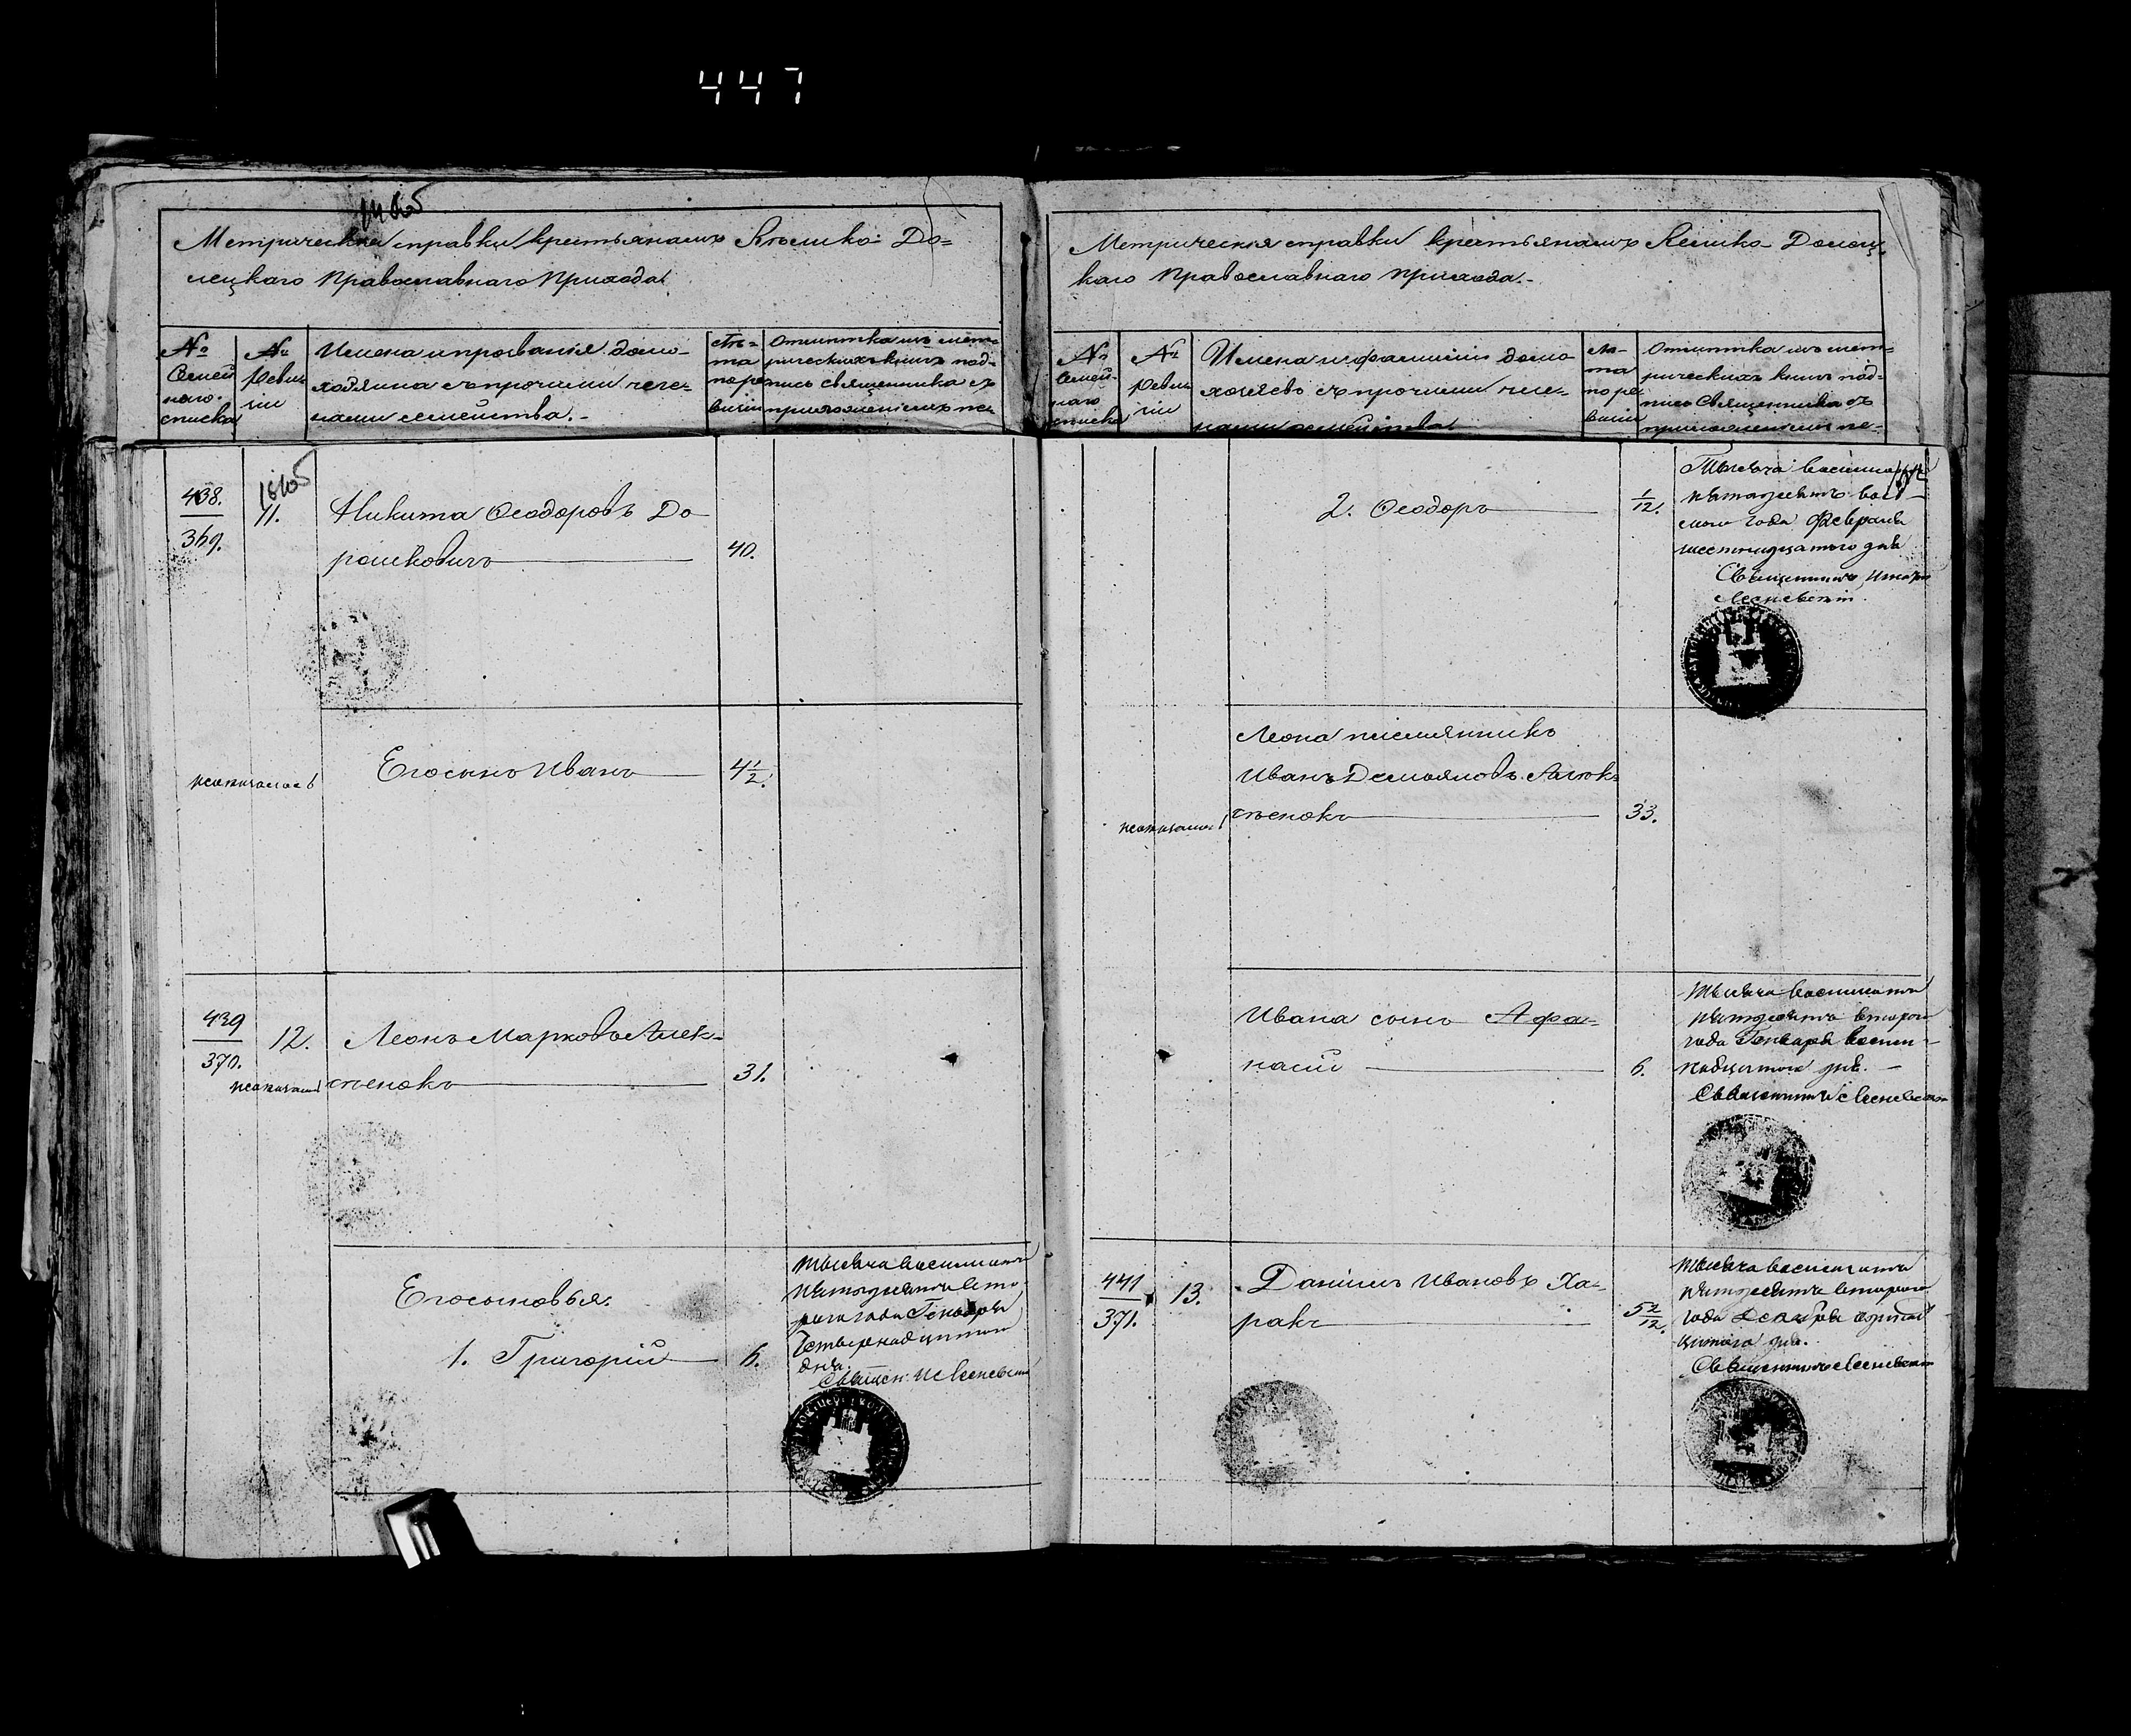 447
Метрическія справки крестьянамъ Клешко-До=
лецкаго Православнаго Прихода
№
Семей
наго
списка
№
Реви
зіи
Имена и прозванія домо-
хозяина съ прочими чле-
нами семейства.-
Лѣ=
та
по ре
визіи
Отмѣтка изъ мет=
рическихъ книгъ под=
пись священника съ
приложеніемъ пе-
438.
369.
11.
Никита Ѳеодоровъ До
рошковичъ
40.
неотысканъ
Его сынъ Иванъ
4 1/2.
439
370.
12.
Леонъ Марковъ Алек-
сѣенокъ
31.
Его сыновья.
1. Григорій
6.
Тысяча восемьсотъ
пятьдесятъ вто-
раго года Генваря
четырнадцатаго
дня.
Священ: И Лесневскій
Метрическія справки крестьянамъ
каго Православнаго прихода.-
№
Семей-
наго
списка
№
Реви
зіи
Имена и фамиліи домо
хозяевъ съ прочими чле-
нами семейства
Лѣ-
та
по ре
визіи
Отмѣтка изъ мет=
рическихъ книгъ под=
пись Священника съ
приложеніемъ пе-
2. Ѳеодоръ
1/12.
Тысяча восемьсотъ
пятьдесятъ вось-
маго года Февраля
шестнадцатаго дня
Священникъ
Лесневскій.
Леона племянникъ
Иванъ Демьяновъ Алек=
сѣенокъ
33.
Ивана сынъ Афа=
насій
6.
Тысяча восемьсотъ
пятьдесятъ втораго
года Генваря восем-
надцатаго дня.-
Священникъ Лесневскій
441
371.
13.
Даніилъ Ивановъ Ха-
ракъ
5 2/12.
Тысяча восемьсотъ
пятьдесятъ втораго
года Декабря
дня.
Священникъ Лесневскій